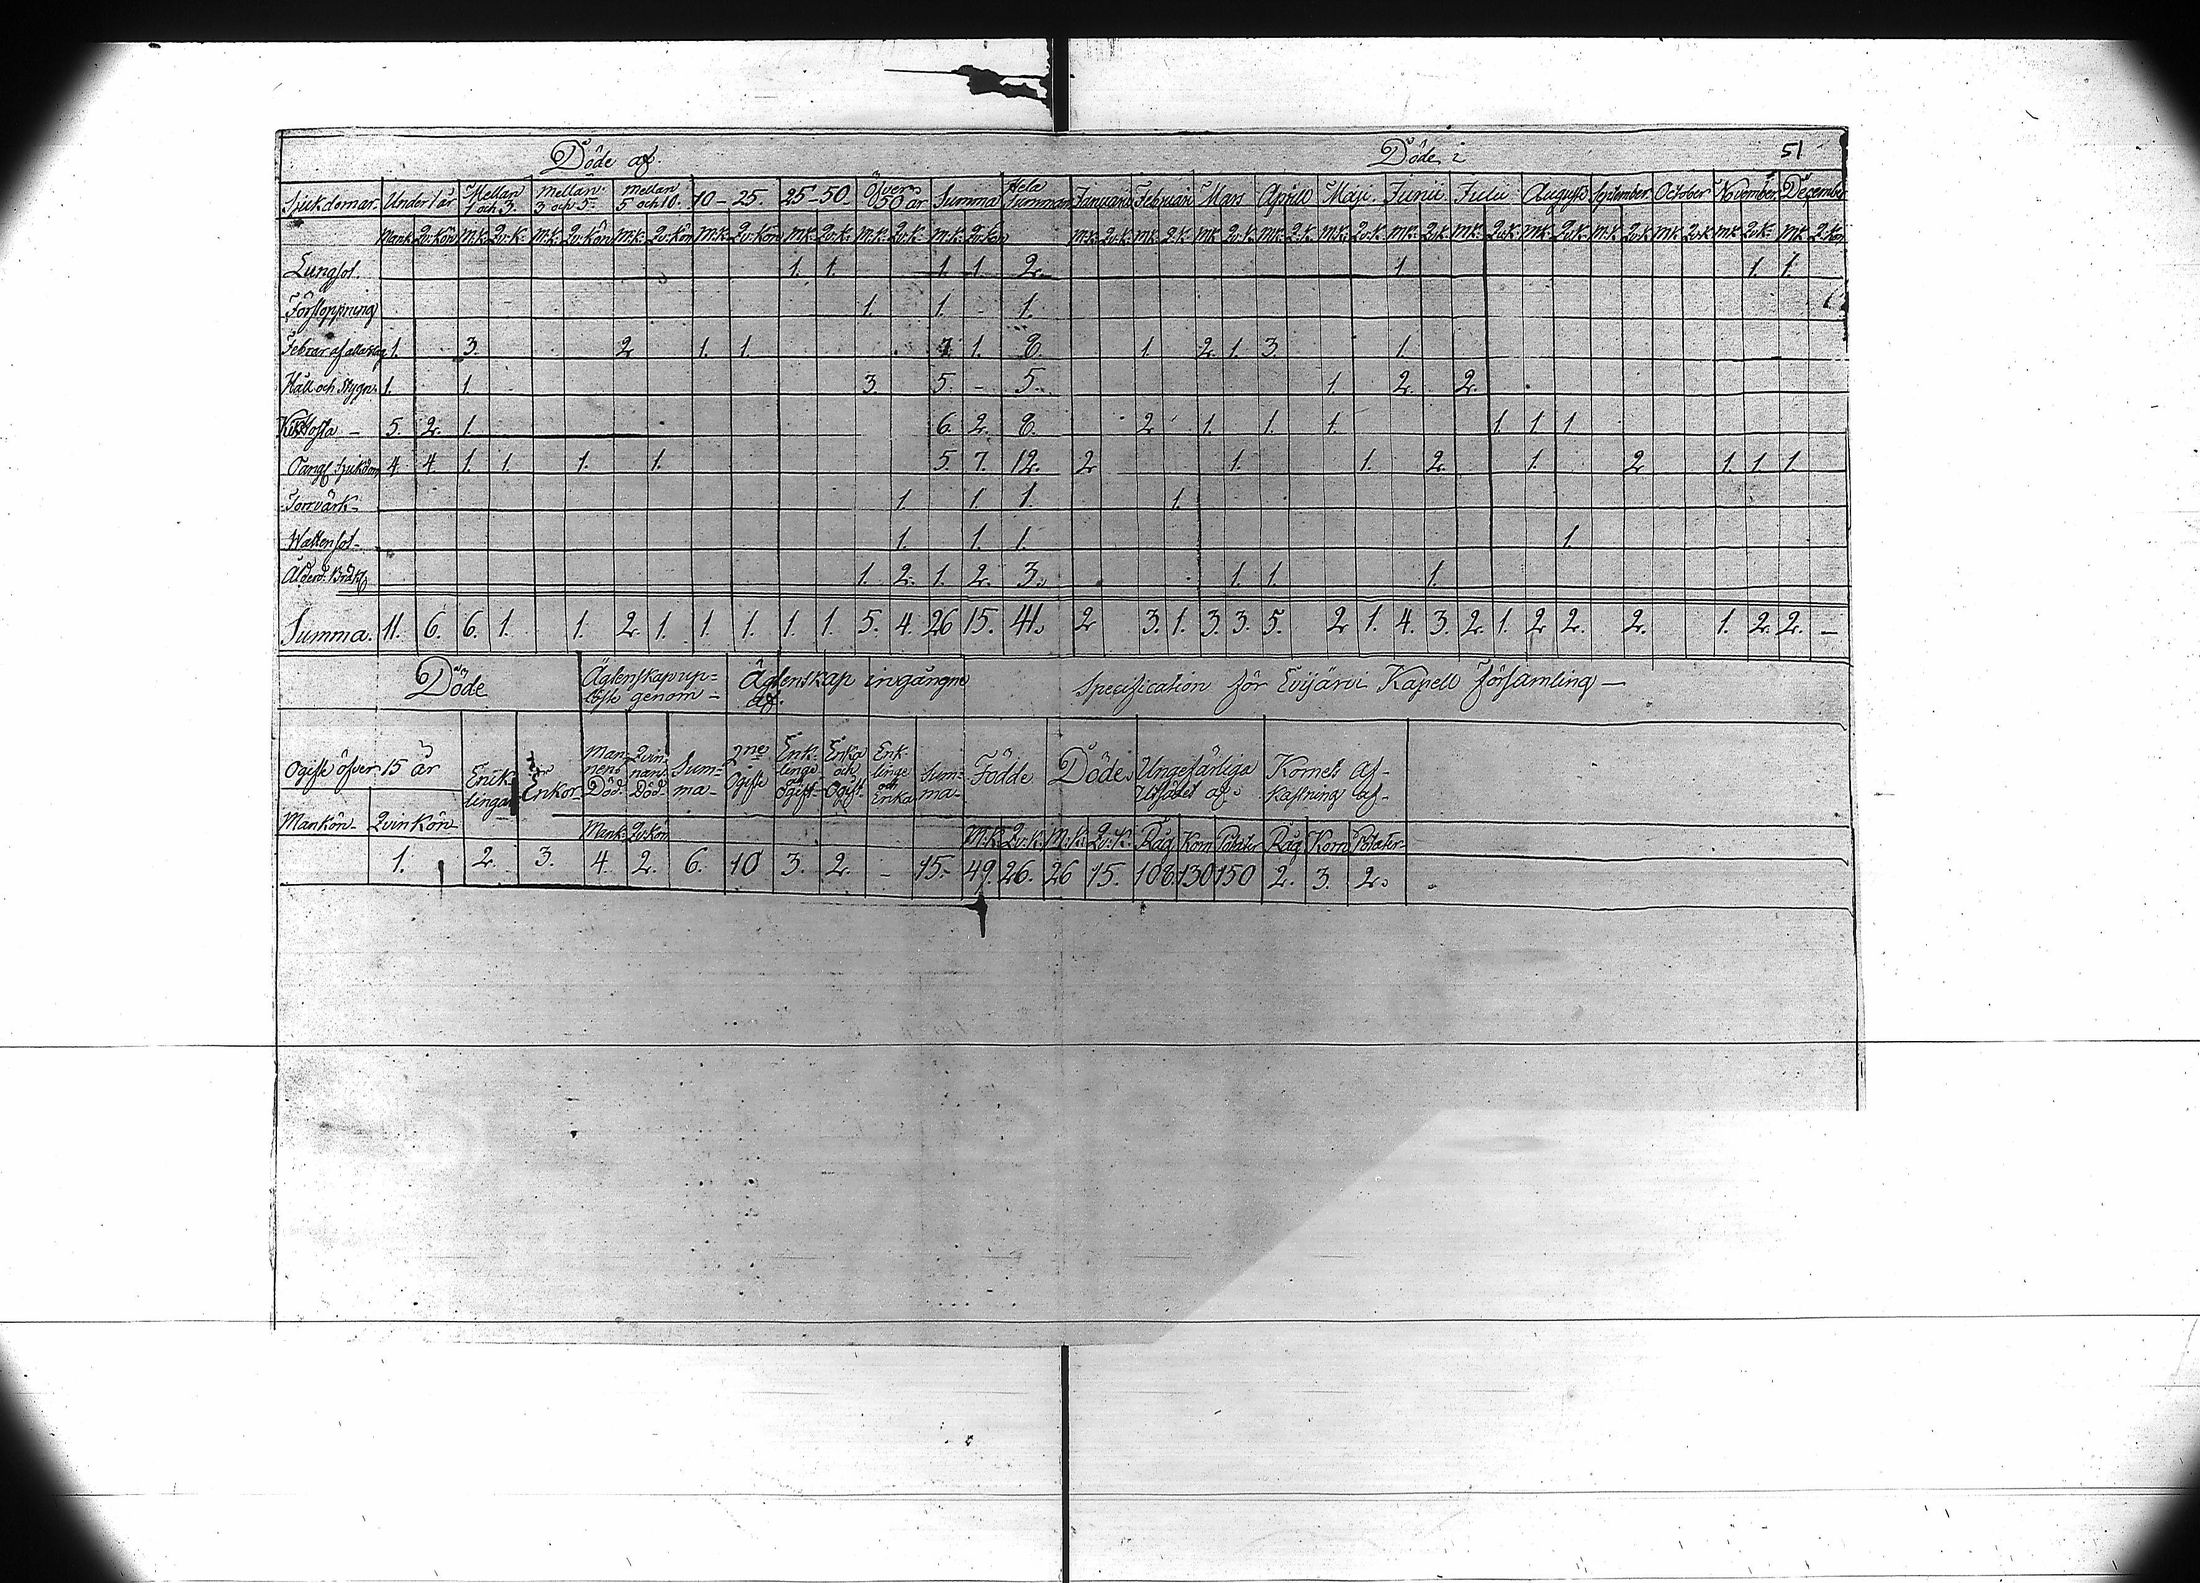 Döde af. Döde i 51
Sjukdomar. Under 1 år Mellan 1 och 3. mellan 3 och 5. medan 5 och 10. 10 - 25. 25 - 50. Öfver 50 år Summa Hela Summan Januarii Februarii Mars Aprill Maji. Junii Julii Augusti September. October November. December
Mank. Qv: Kön M:K: Qv: K: M:K: Qv: Kön M:K: Qv: Kön M:K: Qv: Kön M:K: Qv: K: M:K: Qv: K. M:K: Qv: Kön M:K: Qv: K. M:K: Q: K. M:K Qv: K. M:K: Q: K. M:K: Qv: K. M:K: Qv: K M:K: Qv: K M:K. Qv: K. M:K. Qv: K M:K: Qv: K M:K: Qv: K: M:K: Q: Kön
Lungsot. 1. 1. 1. 1. 2. 1. 1. 1.
Förstoppning 1. 1. - 1. 1.
Febrar af alla slag 1. 3. 2 1. 1. 7. 1. 8. 1. 2. 1. 3. 1.
Håll och Stygn. 1. 1. 3. 5. - 5. 1. 2. 2.
Kikhosta - 5. 2. 1. 6. 2. 8. 2 1. 1. 1. 1. 1. 1
Oangf. Sjukdom 4. 4. 1. 1. 1. 1. 5. 7. 12. 2 1. 1. 2. 1. 2. 1. 1. 1.
Torrvärk - 1. 1. 1. 1.
Wattensot - 1. 1. 1. 1.
Ålderd. Bräkl. 1. 2. 1. 2. 3. 1. 1. 1.
Summa. 11. 6. 6. 1. 1. 2. 1. 1. 1. 1. 1. 5. 4. 26 15. 41. 2 3. 1. 3. 3. 5. 2 1. 4. 3. 2. 1. 2 2. 2. 1. 2. 2. -
Döde Ägtenskap up=
löste genom - Ägtenskap ingångne
af. Specification för Evijärvi Kapell Församling -
Ogifte öfver 15 år Enk-
lingar Enkor - Man-
nens
Död. Qvin-
nans
Död. Sum=
ma - 2ne
Ogifte Enk-
linge
Ogift - Enka
och
Ogift - Enk
linge
och
Enka Sum=
ma - Födde Döde. Ungefärliga
Utsädet af. Kornets af-
kastning af -
Mankön - Qvinkön Mank: Qv: kön M:K: Qv: K. M:K: Qv: K. Råg Korn Potäter Råg Korn Potäter
1. 2. 3. 4. 2. 6. 10 3. 2. - 15. - 49. 26. 26 15. 108 130 150 2. 3. 2.